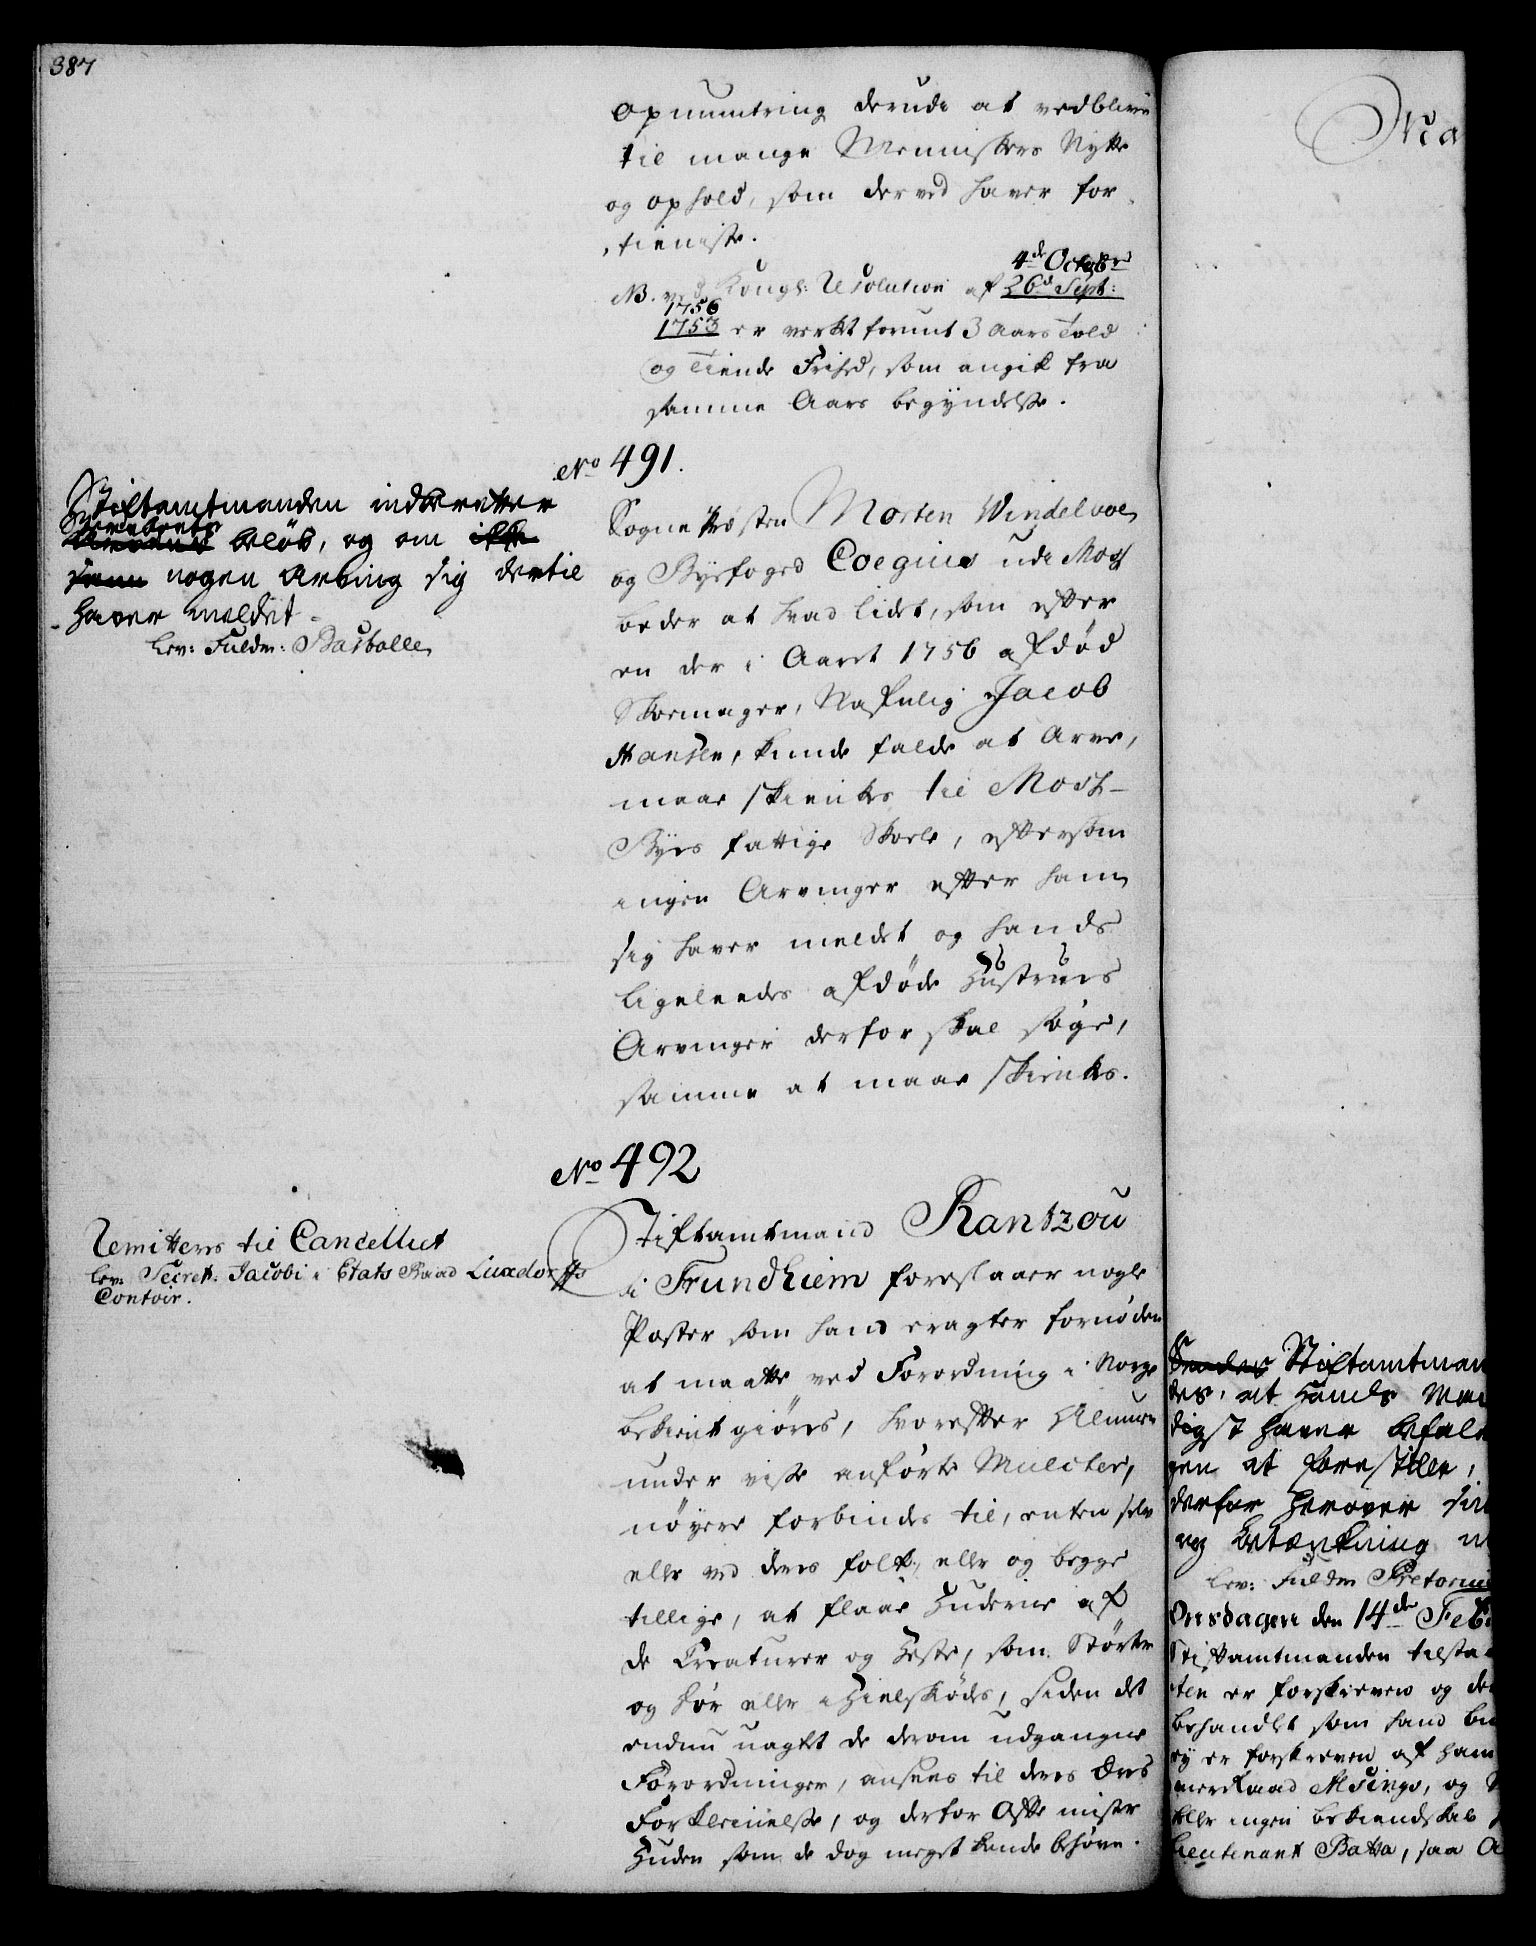 387
Opmuntring derude at vedblive
til mange Menniskers Nytte
og ophold, som derved haver for
tieniste.
NB. ved Kongl: Resolution af 4de Octobr 26de Sept:
1756
1753 er verket forunt 3 Aars Told
og Tiende Frihed, som angik fra
samme Aars begyndelse.
No 491.
Stiftamtmanden indberetter
beløb, og om ikke
nogen Arving sig dertil
haver meldet
lev: Fuldm: Basballe
Sogne Præsten Morten Windelboe
og Byefoged Coegius udi Moss
beder at hvad lidet, som efter
en der i Aaret 1756 afdød
Skoemager, Nafnlig Jacob
Hansen, kunde falde at Arve,
maae skienkes til Moss
Byes fattige Skole, eftersom
ingen Arvinger efter ham
sig haver meldet og hands
ligeleedes afdøde Hustrues
Arvinger derfor skal søge,
samme at maae skienkes.
No 492
Remitteres til Cancelliet
lev: Secret. Jacobi i Etats Raad Luxdorffs
Contoir.
Stiftamtmand Rantzou
i Trundhiem foreslaaer nogle
Poster som hand eragter fornøden
at maatte ved Forordning i Norge
bekient giøres, hvorefter Almuen
under visse anførte Mulcter,
nøyere forbindes til, enten selv
eller ved deres folk, eller og begge
tillige, at flaae Huderne af
de Creaturer og Heste, som Størter
og døe eller ihielskødes, siden det
endnu uagtet de derom udgangne
Forordninger, ansees til deres Æres
Forkleinelse, og derfor Ofte mister
Huden som de dog meget kunde behøve.
Ma
Sendes Stiftamtman
des, at Hands Ma
digst haver befale
gen at forestille,
derfor herover sin
og betænkning
lev: Fuldm Pretorius
Onsdagen den 14de Febr
Stiftamtmanden tilsta
ten er forskreven og de
behandlet som hand
ey er forskreven af ham
merRaad Elsings, og
eller ingen bekiendskab
Lieutenant Batta, saa